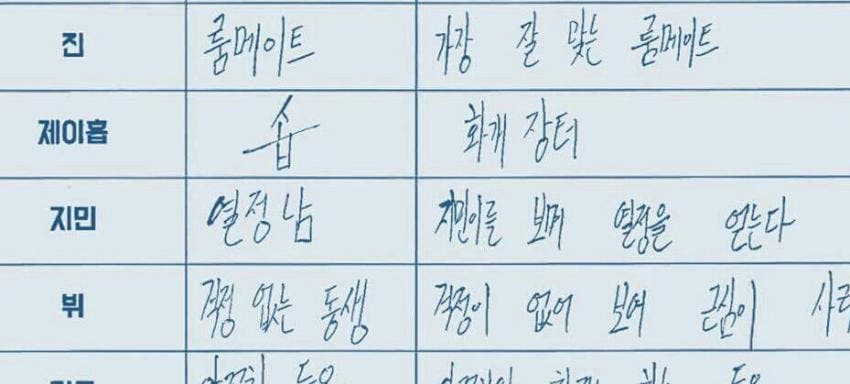 진 룸메이트 가장 잘 맞는 룸메이트
제이홉 솝 화개 장터
지민 열정남 지민이를 보며 열정을 얻는다
뷔 걱정 없는 동생 걱정이 없어 보여 근심이